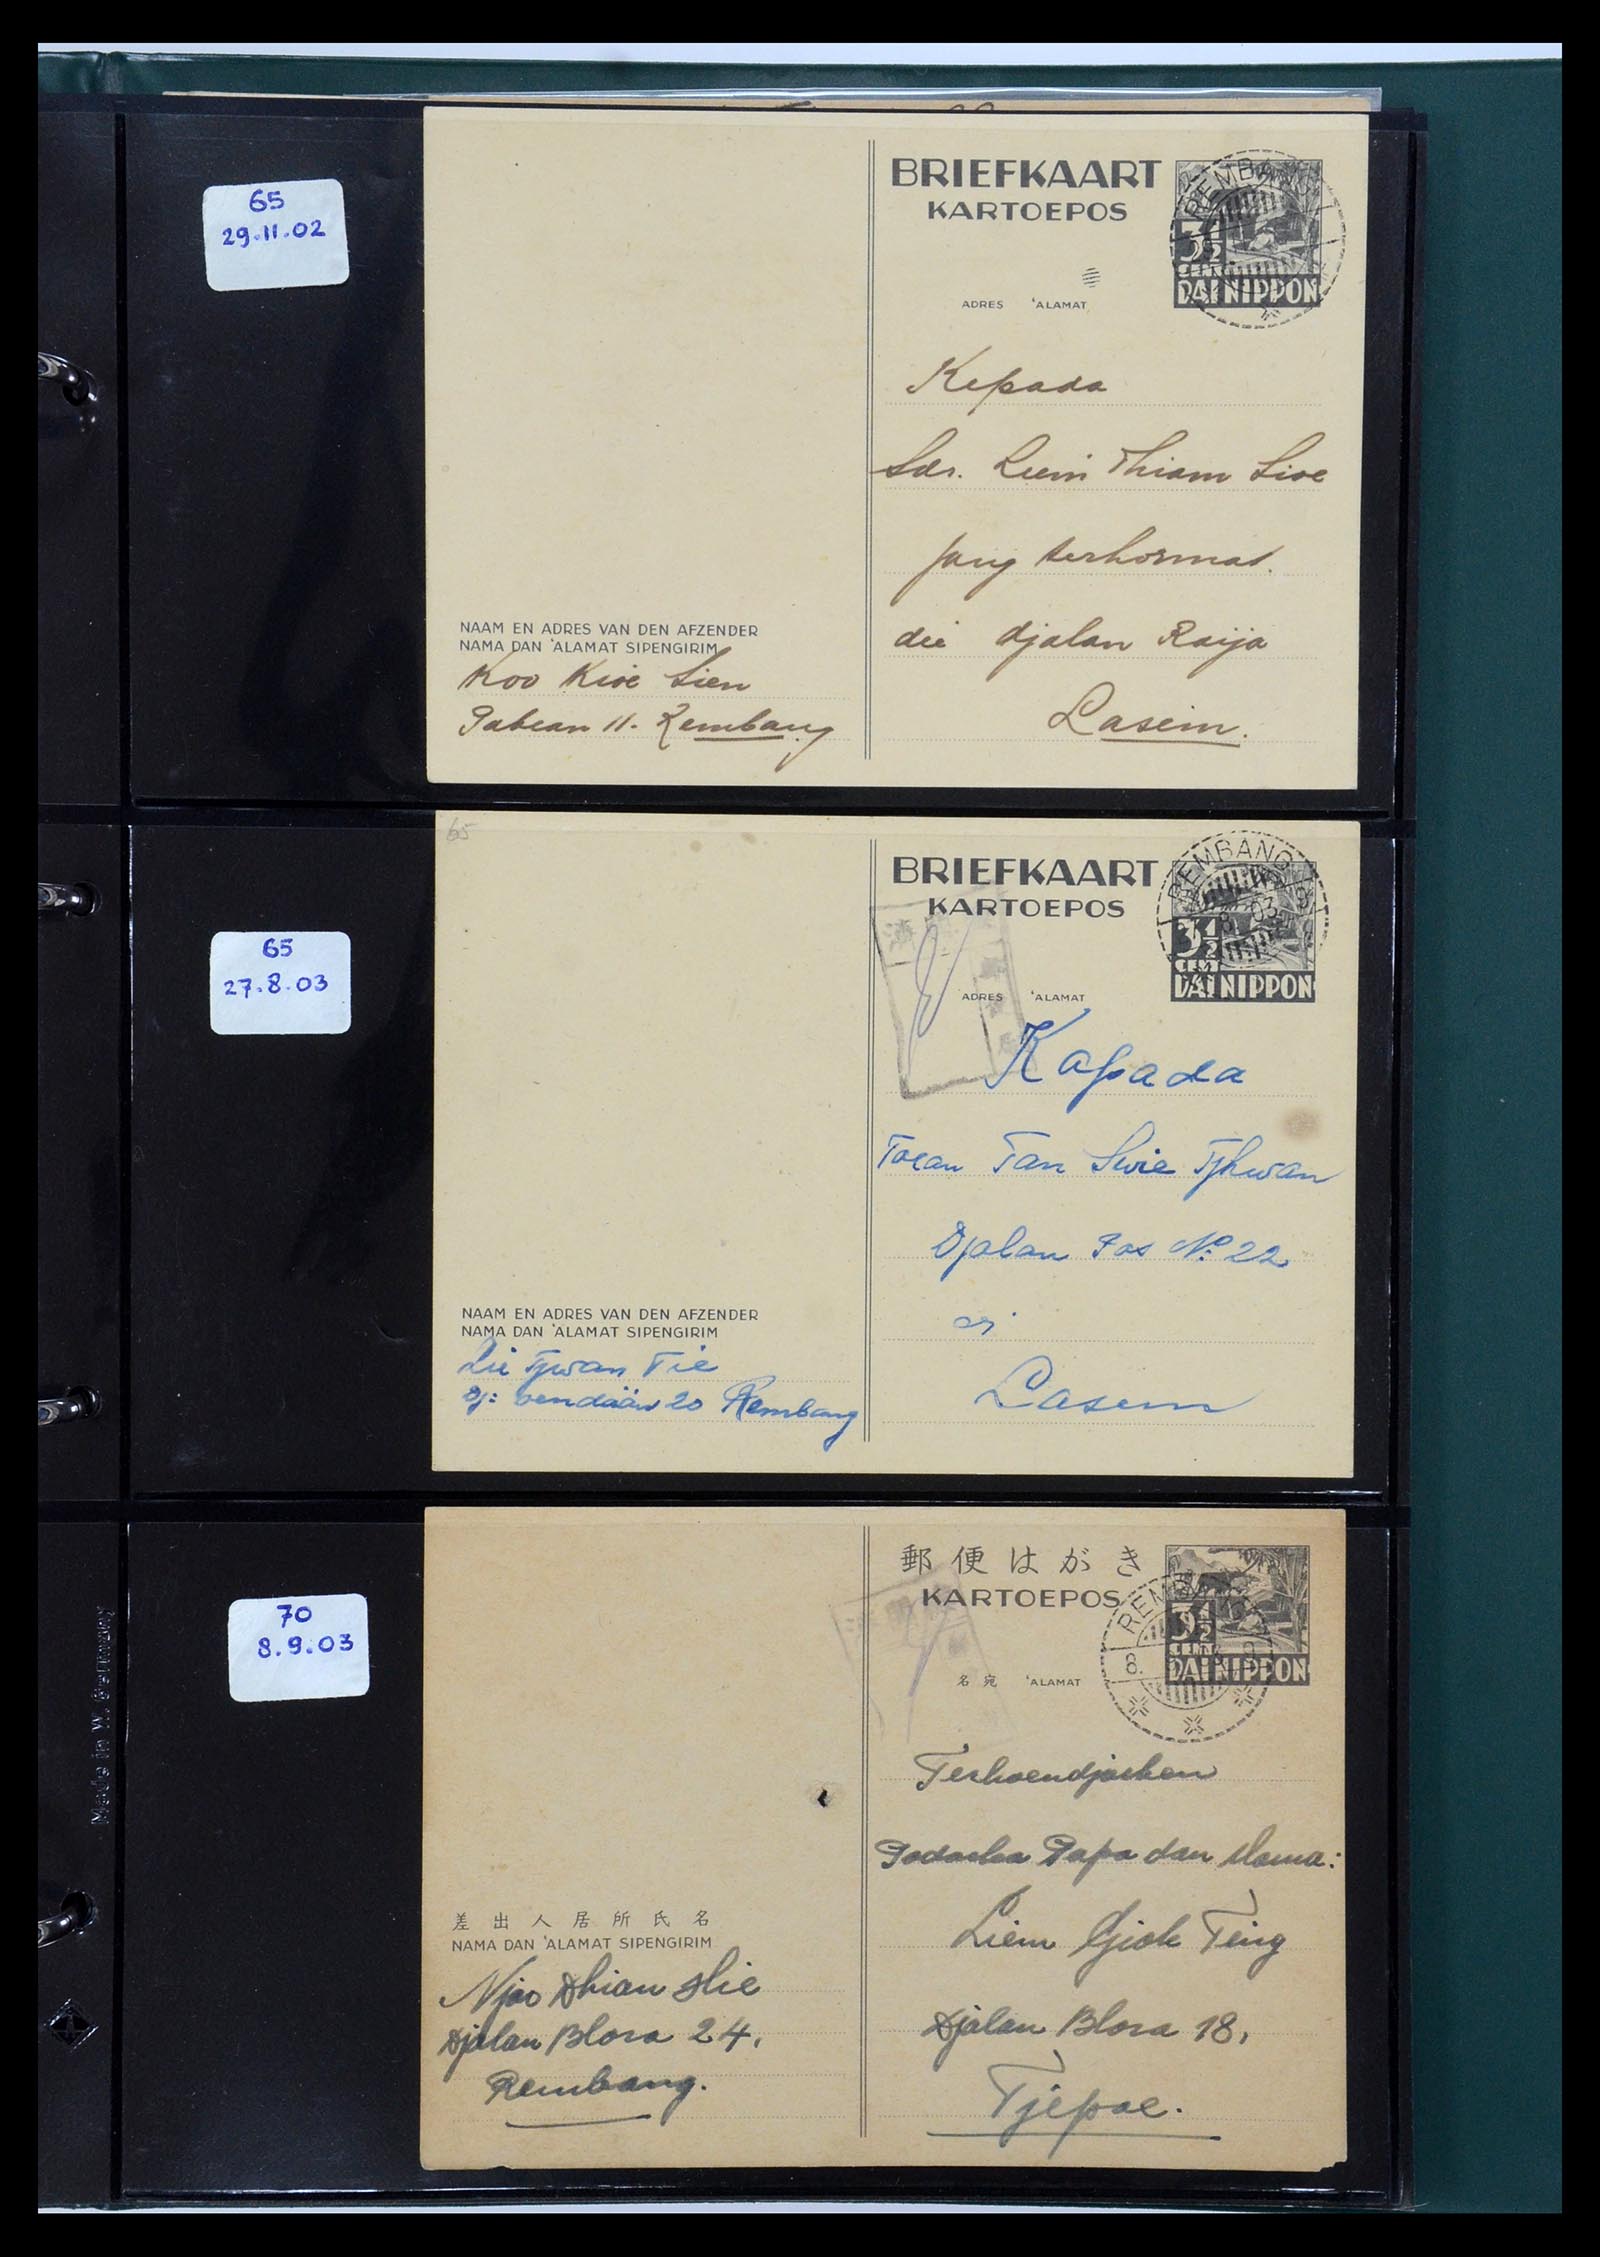 65
29.11.02
BRIEFKAART
KARTOEPOS
REMBANG
3½
CENT
DAI NIPPON
ADRES 'ALAMAT
Kepada
Sdr. Liem Thiam Sioe
jang terhormat.
die djalan Raija
Lasem.
NAAM EN ADRES VAN DEN AFZENDER
NAMA DAN 'ALAMAT SIPENGIRIM
Koo Kioe Sien
Pabean 11. Rembang
65
27.8.03
65
BRIEFKAART
KARTOEPOS
REMBANG
8. 03. 9
3½
CENT
DAI NIPPON
ADRES 'ALAMAT
Kapada
Toean Tan Swie Tjhwan
Djalan Pos No: 22
di
Lasem
NAAM EN ADRES VAN DEN AFZENDER
NAMA DAN 'ALAMAT SIPENGIRIM
Lie Tjwan Tie
Dj: vendäan 20 Rembang
70
8.9.03
郵便はがき
KARTOEPOS
REMBANG
8.
3½
CENT
DAI NIPPON
名宛 'ALAMAT
Terhoendjoeken
Padoeka Papa dan Mama:
Liem Giok Ting
Djalan Blora 18,
Tjepoe.
差出人居所氏名
NAMA DAN 'ALAMAT SIPENGIRIM
Njoo Dhian Hie
Djalan Blora 24,
Rembang.
Made in W. Germany